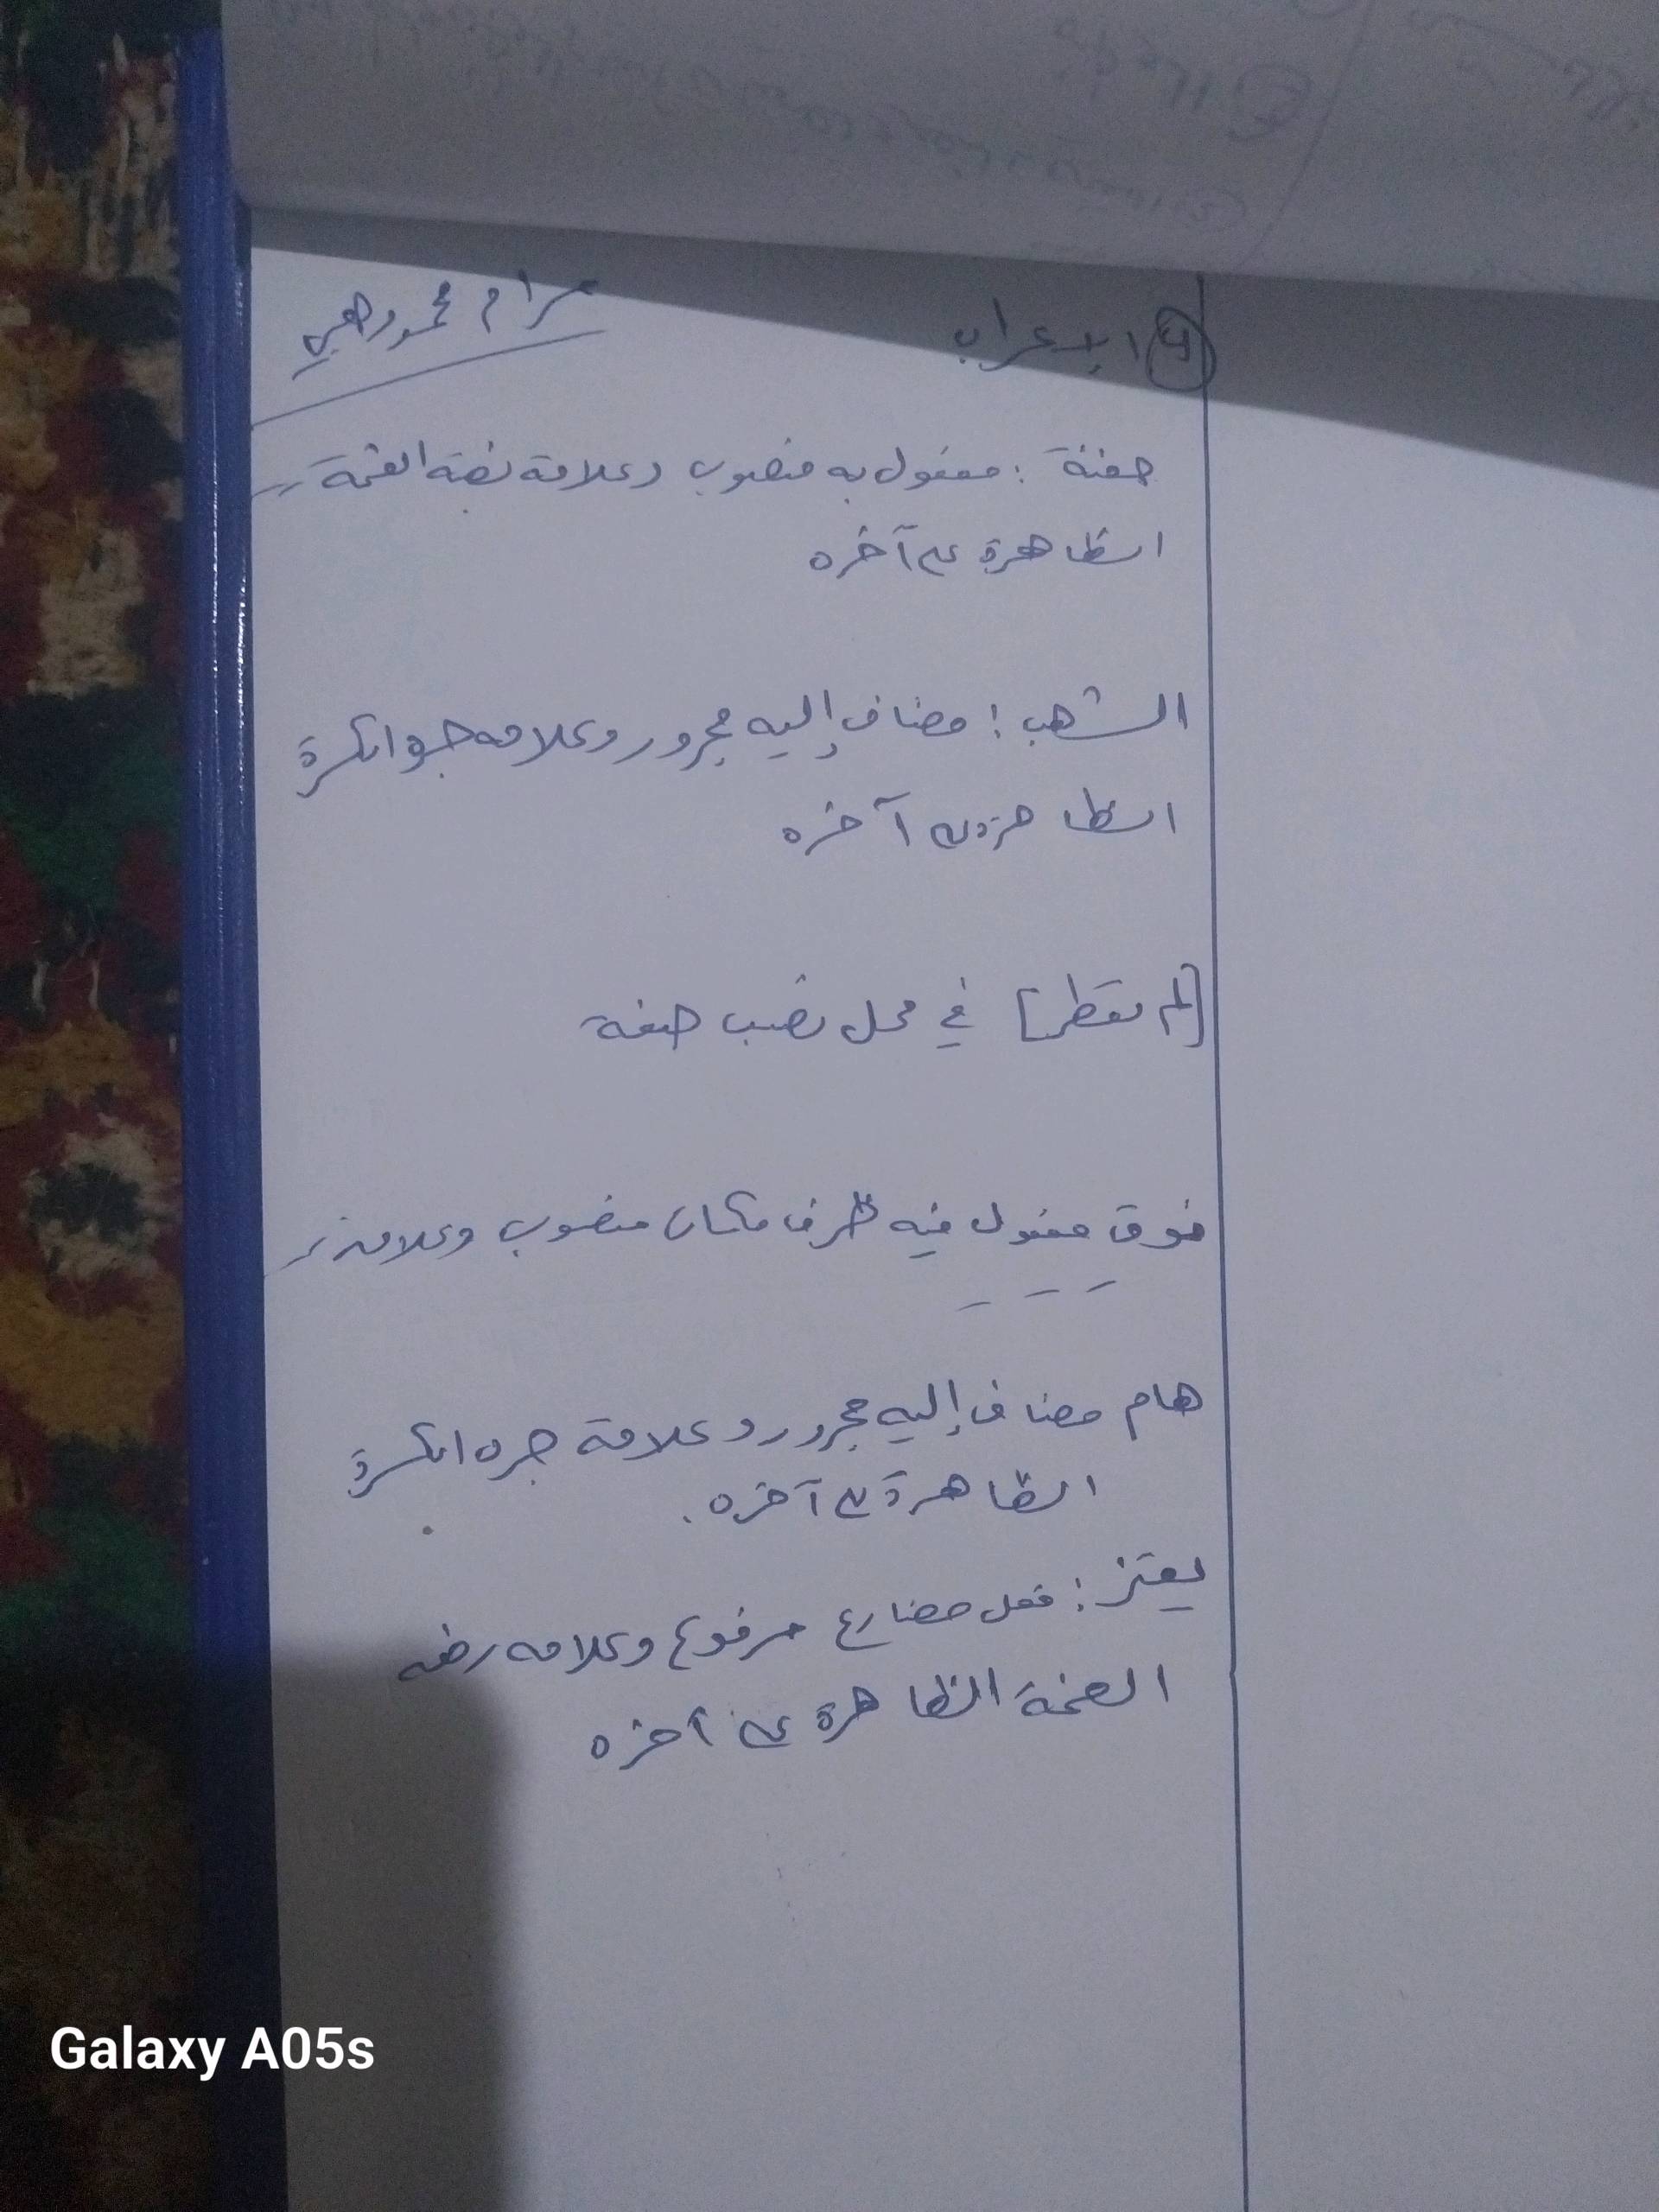 ٩ الإعراب
مرام محمود
حفنة : مفعول به منصوب وعلامة نصبه الفتحة
الظاهرة على آخره
الشهب : مضاف إليه مجرور وعلامه جره الكسرة
الظاهرة على آخره
[لم تقطر] في محل نصب صفة
فوق مفعول فيه ظرف مكان منصوب وعلامته
هام مضاف إليه مجرور وعلامة جره الكسرة
الظاهرة على آخره .
يعتز : فعل مضارع مرفوع وعلامه رفعه
الضمة الظاهرة على آخره
Galaxy A05s